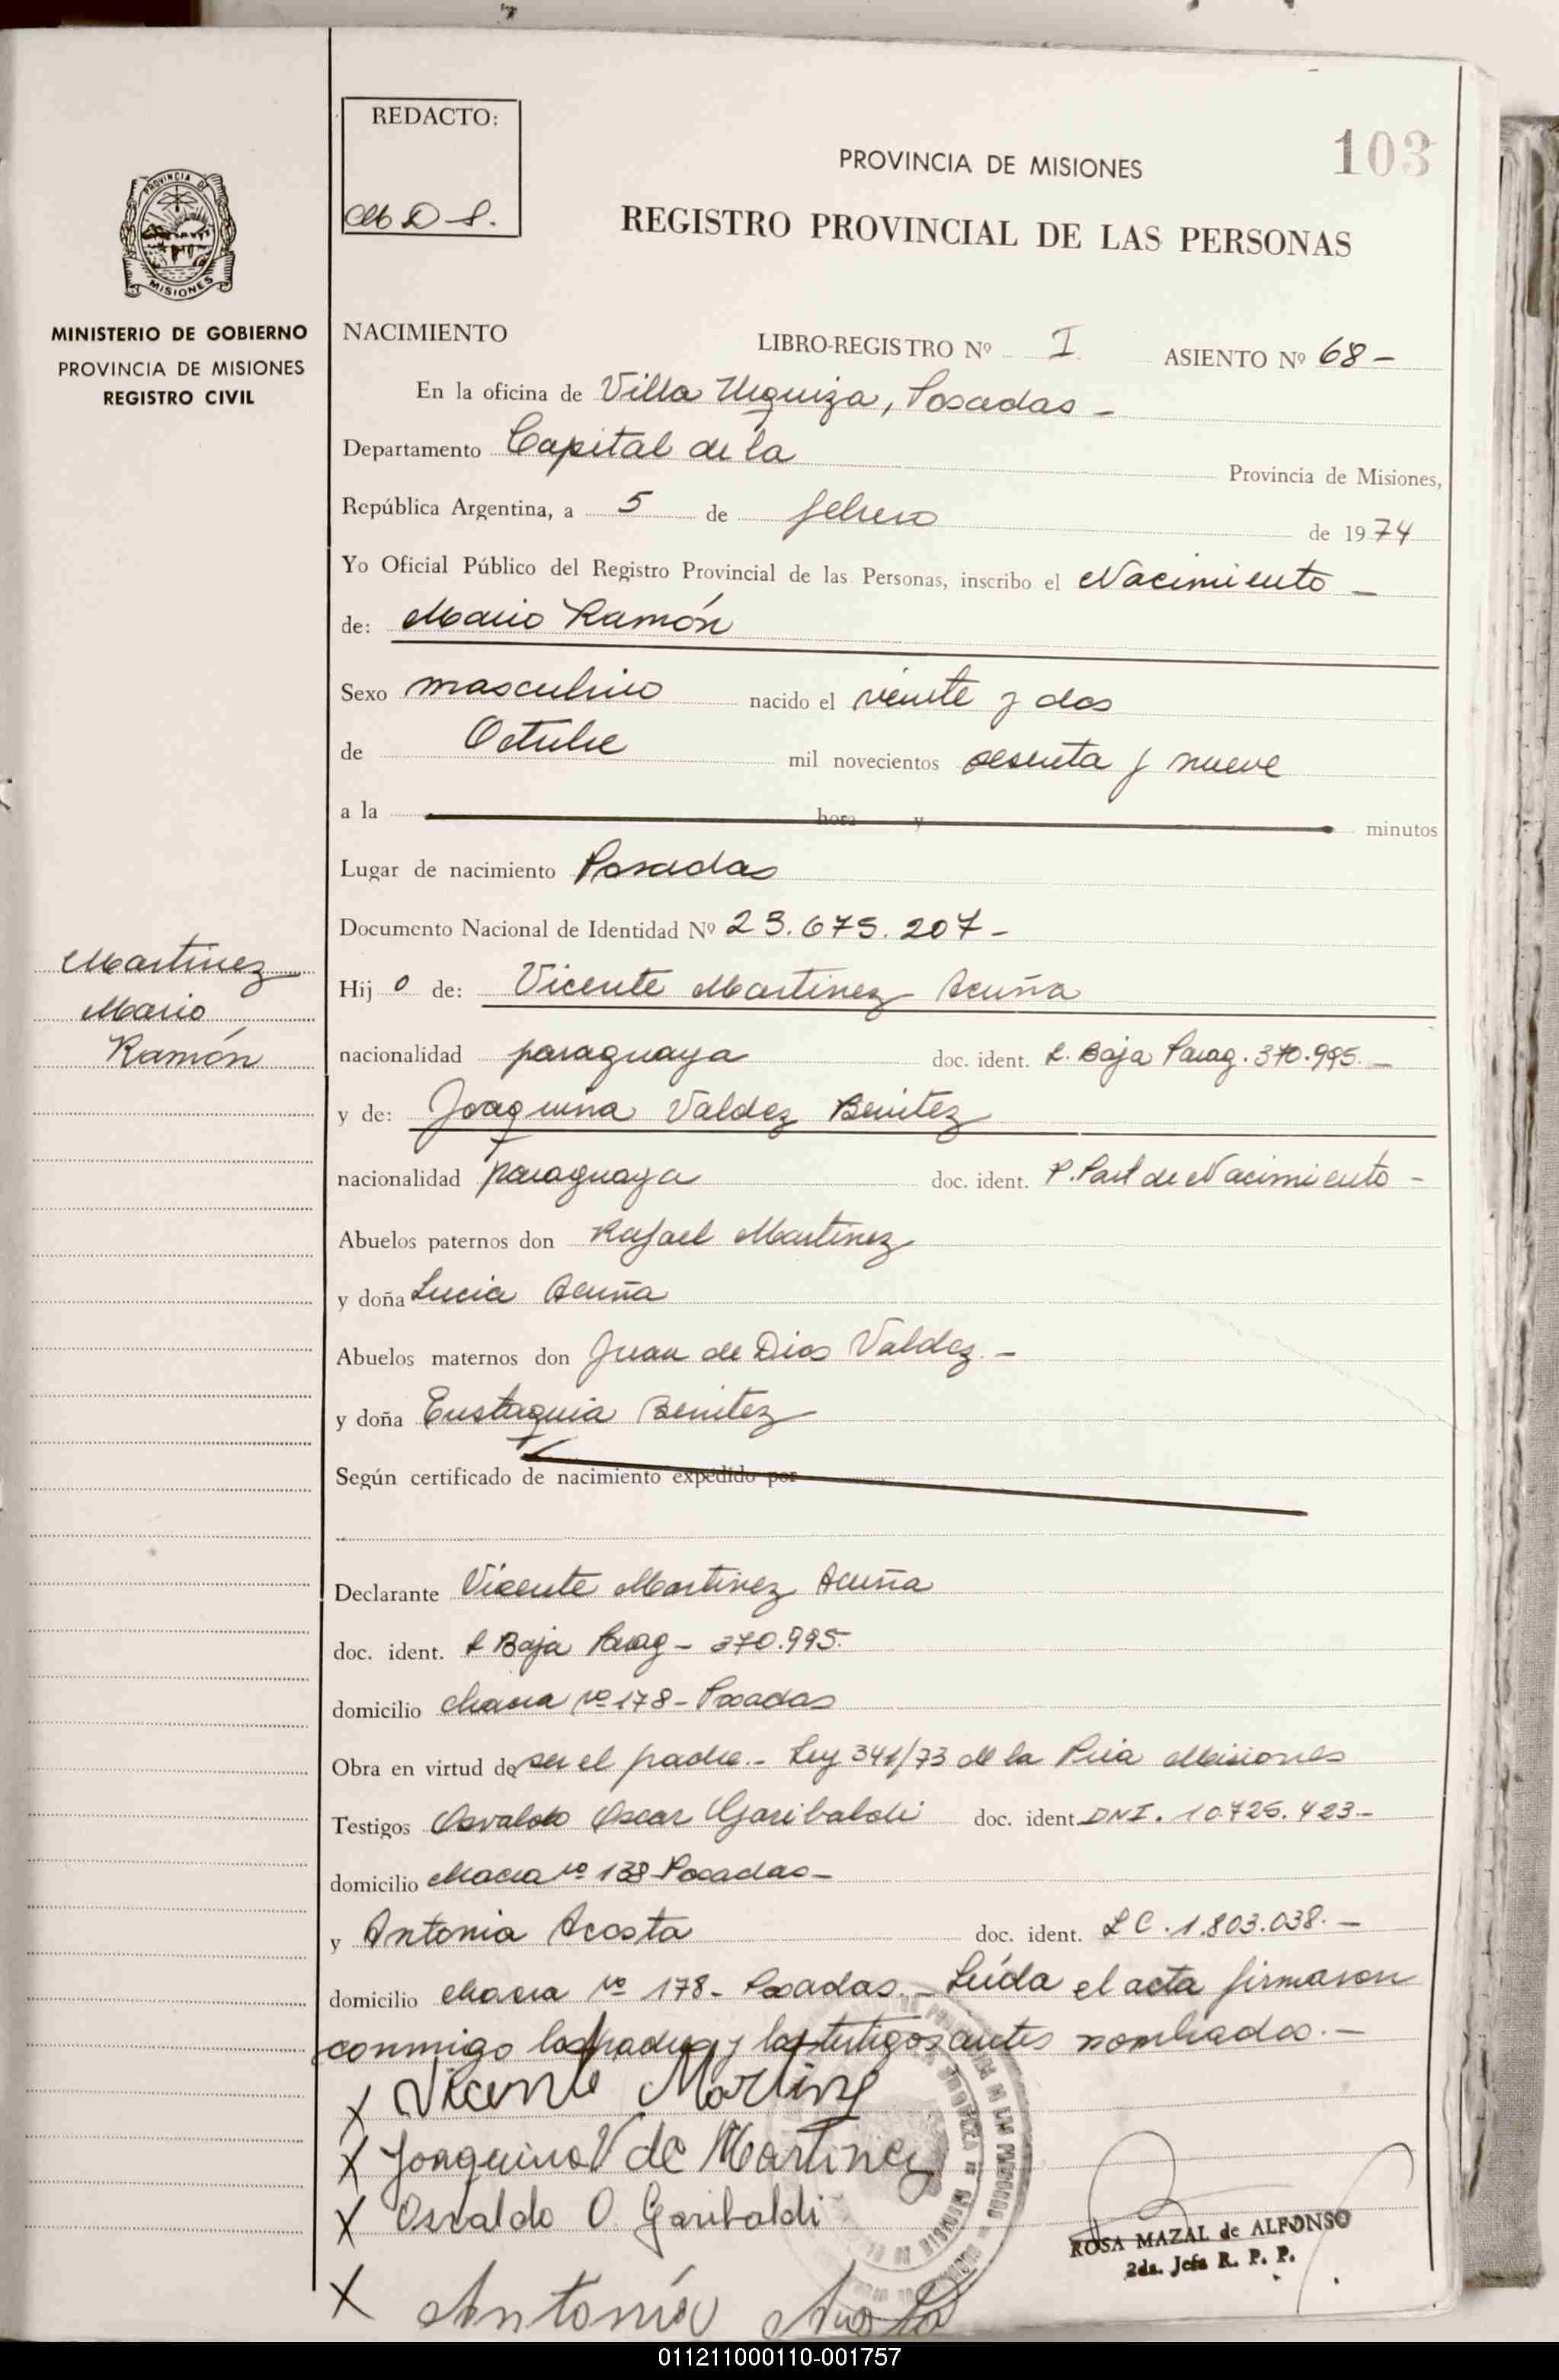 REDACTO:
PROVINCIA DE MISIONES
103
REGISTRO PROVINCIAL DE LAS PERSONAS
PROVINCIA DE
MISIONES
MINISTERIO DE GOBIERNO
PROVINCIA DE MISIONES
REGISTRO CIVIL
NACIMIENTO LIBRO-REGISTRO Nº I ASIENTO Nº 68-
En la oficina de Villa Urquiza, Posadas -
Departamento Capital de la Provincia de Misiones,
República Argentina, a 5 de febrero de 1974
Yo Oficial Público del Registro Provincial de las Personas, inscribo el Nacimiento -
de: Mario Ramón
Sexo masculino nacido el veinte y dos
de Octubre mil novecientos sesenta y nueve
a la hora y minutos
Lugar de nacimiento Posadas
Documento Nacional de Identidad Nº 23.675.207-
Martinez
Mario
Ramón
Hijo de: Vicente Martinez Acuña
nacionalidad paraguaya doc. ident. L. Baja Parag. 370.995.-
y de: Joaquina Valdez Benitez
nacionalidad paraguaya doc. ident. P. Part de Nacimiento -
Abuelos paternos don Rafael Martinez
y doña Lucia Acuña
Abuelos maternos don Juan de Dios Valdez.-
y doña Eustaquia Benitez
Según certificado de nacimiento expedido por
Declarante Vicente Martinez Acuña
doc. ident. L Baja Parag - 370.995.
domicilio chacra Nº 178 - Posadas
Obra en virtud de ser el padre.- Ley 341/73 de la Pcia Misiones
Testigos Osvaldo Oscar Garibaldi doc. ident. DNI. 10.726.423.-
domicilio chacra Nº 138 Posadas-
y Antonia Acosta doc. ident. LC. 1.803.038.-
domicilio chacra Nº 178- Posadas.- Leída el acta firmaron
conmigo los padres y los testigos antes nombrados.-
x Vicente Martinez
x Joaquina V de Martinez
x Osvaldo O. Garibaldi
ROSA MAZAL de ALFONSO
2da. Jefa R. P. P.
x Antonia
011211000110-001757